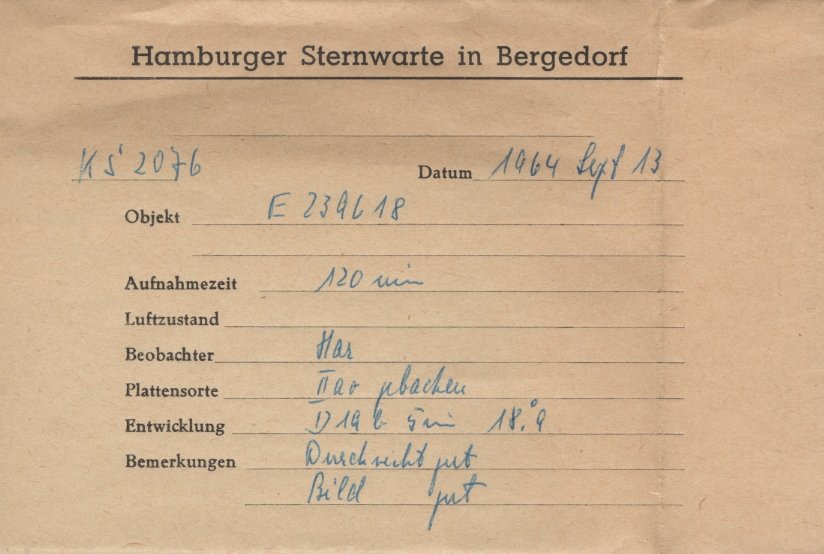 Hamburger Sternwarte in Bergedorf
KS 2076 Datum 1964 Sept 13
Objekt E 239618
Aufnahmezeit 120 min
Luftzustand
Beobachter Har
Plattensorte IIao gebacken
Entwicklung D19b 5min 18.°9
Bemerkungen Durchsicht gut
Bild gut